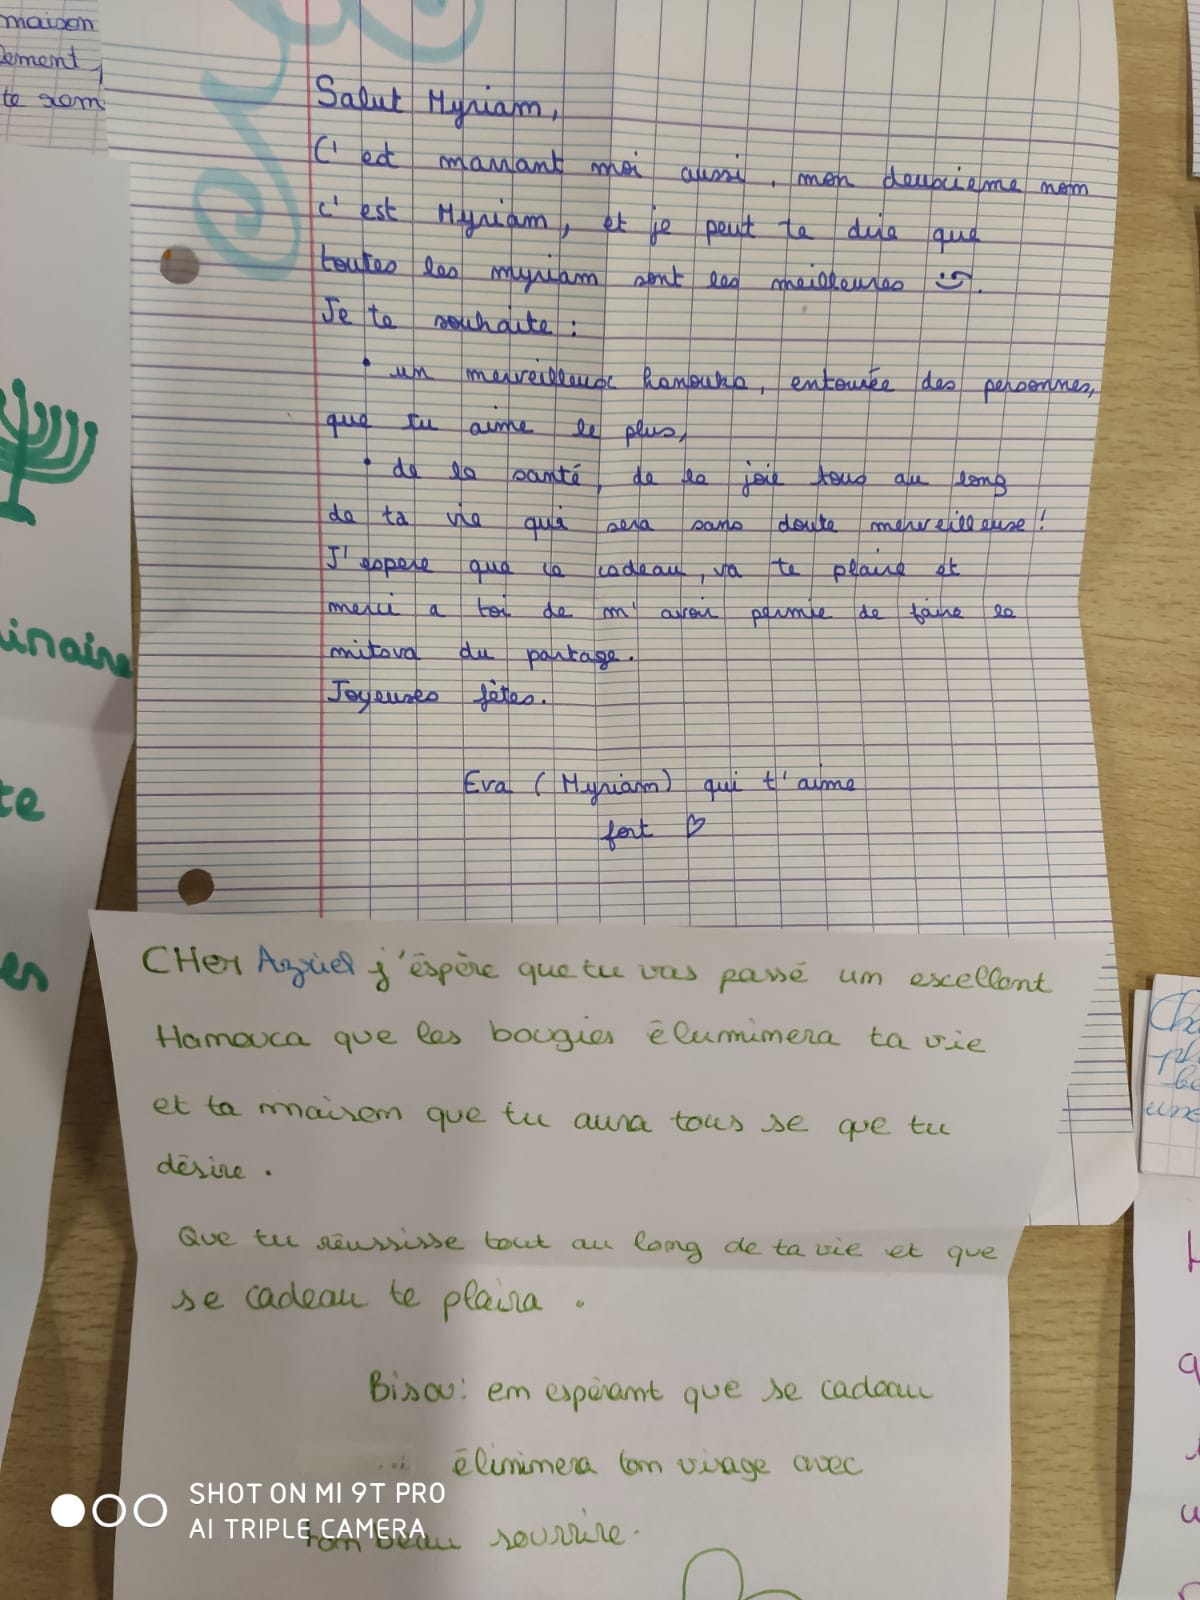 maison
lement,
te
Salut Myriam,
C'est marrant moi aussi, mon deuxieme nom
c'est Myriam, et je peut te dire que
toutes les myriam sont les meilleures :).
Je te souhaite :
• un merveilleux hanouka, entourée des personnes,
que tu aime le plus,
• de la santé, de la joie tous au long
de ta vie qui sera sans doute merveilleuse !
J'espere que ce cadeau, va te plaire et
merci a toi de m'avoir permie de faire la
mitsva du partage.
Joyeuses fêtes.
Eva (Myriam) qui t'aime
fort ♡
inaire
te
es
CHer Azriel j'éspère que tu vas passé um excellant
Hamouca que les bougies élumimera ta vie
et ta maisom que tu aura tous se que tu
désire.
Que tu réussisse tout au long de ta vie et que
se cadeau te plaira.
Bisou: em espérant que se cadeau
éliminera tom visage avec
tom beau sourrire.
SHOT ON MI 9T PRO
AI TRIPLE CAMERA